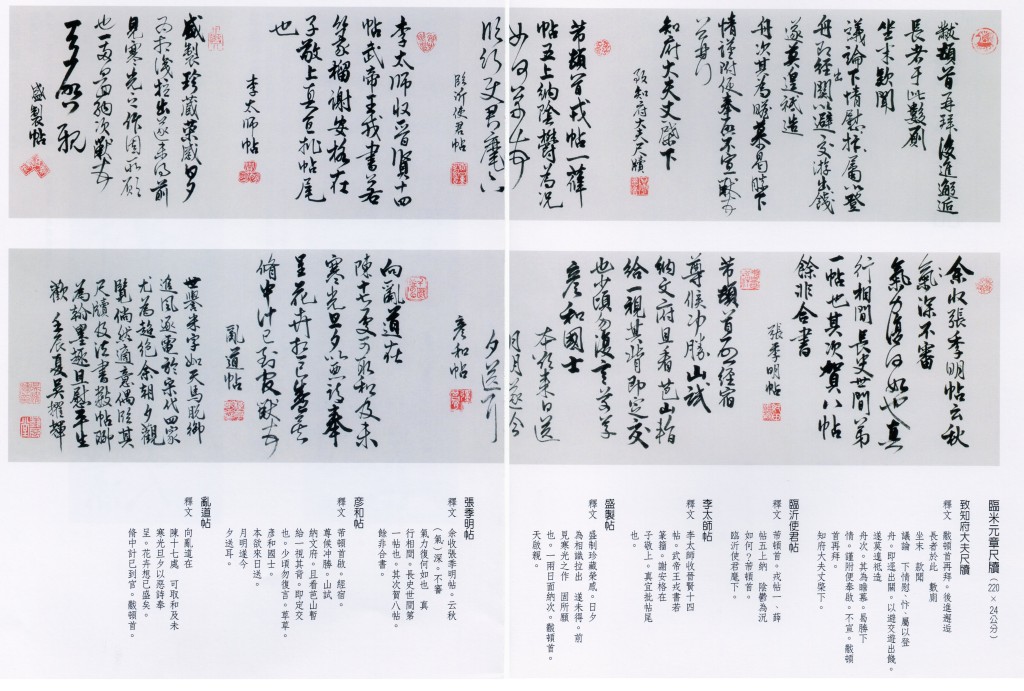 黻頓首再拜後進邂逅
長者于此數廁
坐末款聞
議論下情慰抃屬以登
舟即經出關以避交游出餞
遂莫遑祗造
舟次其為瞻慕曷勝下
情謹附便奉啟不宣黻頓
首再拜
知府大夫丈棨下
致知府大夫尺牘
芾頓首戎帖一薛
帖五上納陰鬱為況
如何芾頓首
臨沂使君麾下
臨沂使君帖
李太師收晉賢十四
帖武帝王戎書若
篆籀謝安格在
子敬上真宜批帖尾
也
李太師帖
盛製珍藏榮感日夕
為相識拉出遂未得前
見寒光之作固所願
也一兩日面納次黻頓首
天啟親
盛製帖
余收張季明帖云秋
氣深不審
氣力復何如也真
行相間長史世間第
一帖也其次賀八帖
餘非合書
張季明帖
芾頓首啟經宿
尊候冲勝山試
納文府且看芭山暫
給一視其背即定交
也少頃勿復言草草
彥和國士
本欲來日送
月明遂今
夕送耳
彥和帖
向亂道在
陳十七處可取和及未
寒光旦夕以惡詩奉
呈花卉想已盛矣
脩中計已到宮黻頓首
亂道帖
世譽米字如天馬脫銜
追風逐電於宋代四家
尤為超絕余朝夕觀
覽偶然適意偶臨其
尺牘及法書數帖聊
為翰墨趣且慰平生
歡 壬辰夏吳耀輝
臨米元章尺牘（220 × 24公分）
致知府大夫尺牘
釋文 黻頓首再拜。後進邂逅
長者於此 數廁
坐末 款聞
議論 下情慰、忭、屬以登
舟。即遄出關。以避交遊出餞。
遂莫遑祗造
舟次。其為瞻幕。曷勝下
情。謹附便奉啟。不宣。黻頓
首再拜。
知府大夫丈棨下。
臨沂使君帖
釋文 芾頓首。戎帖一、薛
帖五上納 陰鬱為況
如何？芾頓首。
臨沂使君麾下。
李太師帖
釋文 李太師收晉賢十四
帖。武帝王戎書若
篆籀。謝安格在
子敬上。真宜批帖尾
也。
盛製帖
釋文 盛制珍藏榮感。日夕
為相識拉出 遂未得。前
見寒光之作 固所願
也。一兩日面納次。黻頓首。
天啟親。
張季明帖
釋文 余收張季明帖。云秋
（氣）深。不審
氣力復何如也 真
行相間。長史世間第
一帖也。其次賀八帖。
餘非合書。
彥和帖
釋文 芾頓首啟。經宿。
尊候冲勝。山試
納文府。且看芭山暫
給一視其背。即定交
也。少頃勿復言。草草。
彥和國士。
本欲來日送。
月明遂今
夕送耳。
亂道帖
釋文 向亂道在
陳十七處 可取和及未
寒光旦夕以惡詩奉
呈。花卉想已盛矣。
脩中計已到宮。黻頓首。